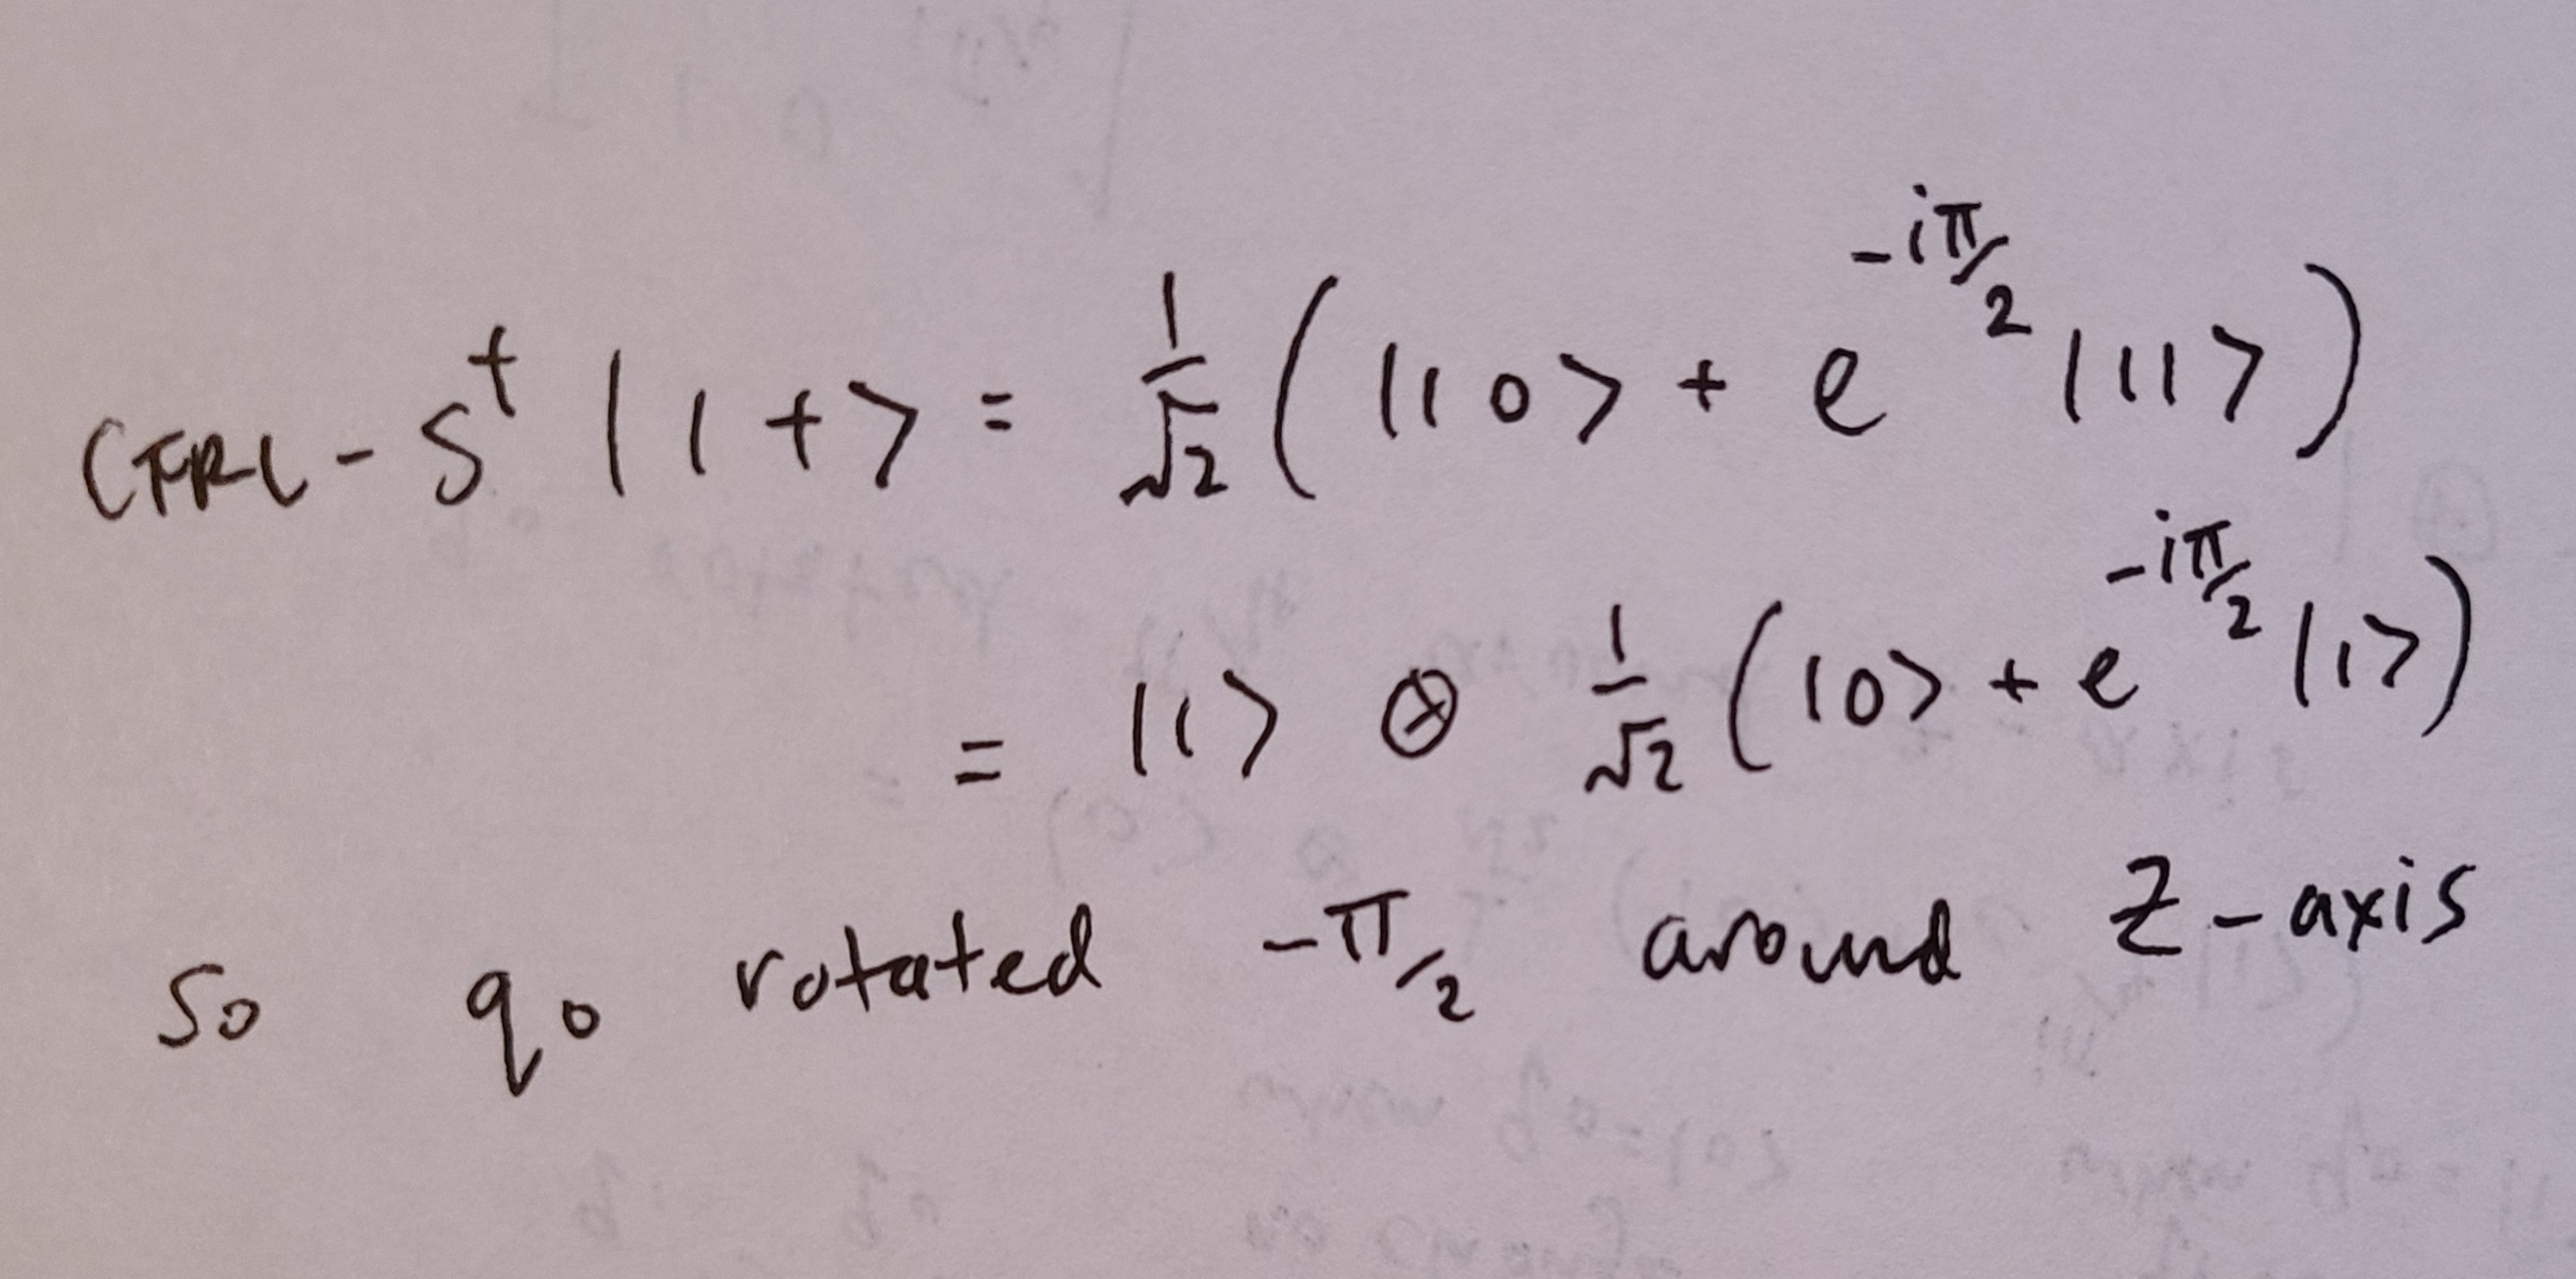 CTRL-S† |1+> = 1/√2 (|10> + e^-iπ/2 |11>)
= |1> ⊗ 1/√2 (|0> + e^-iπ/2 |1>)
So q0 rotated -π/2 around Z-axis